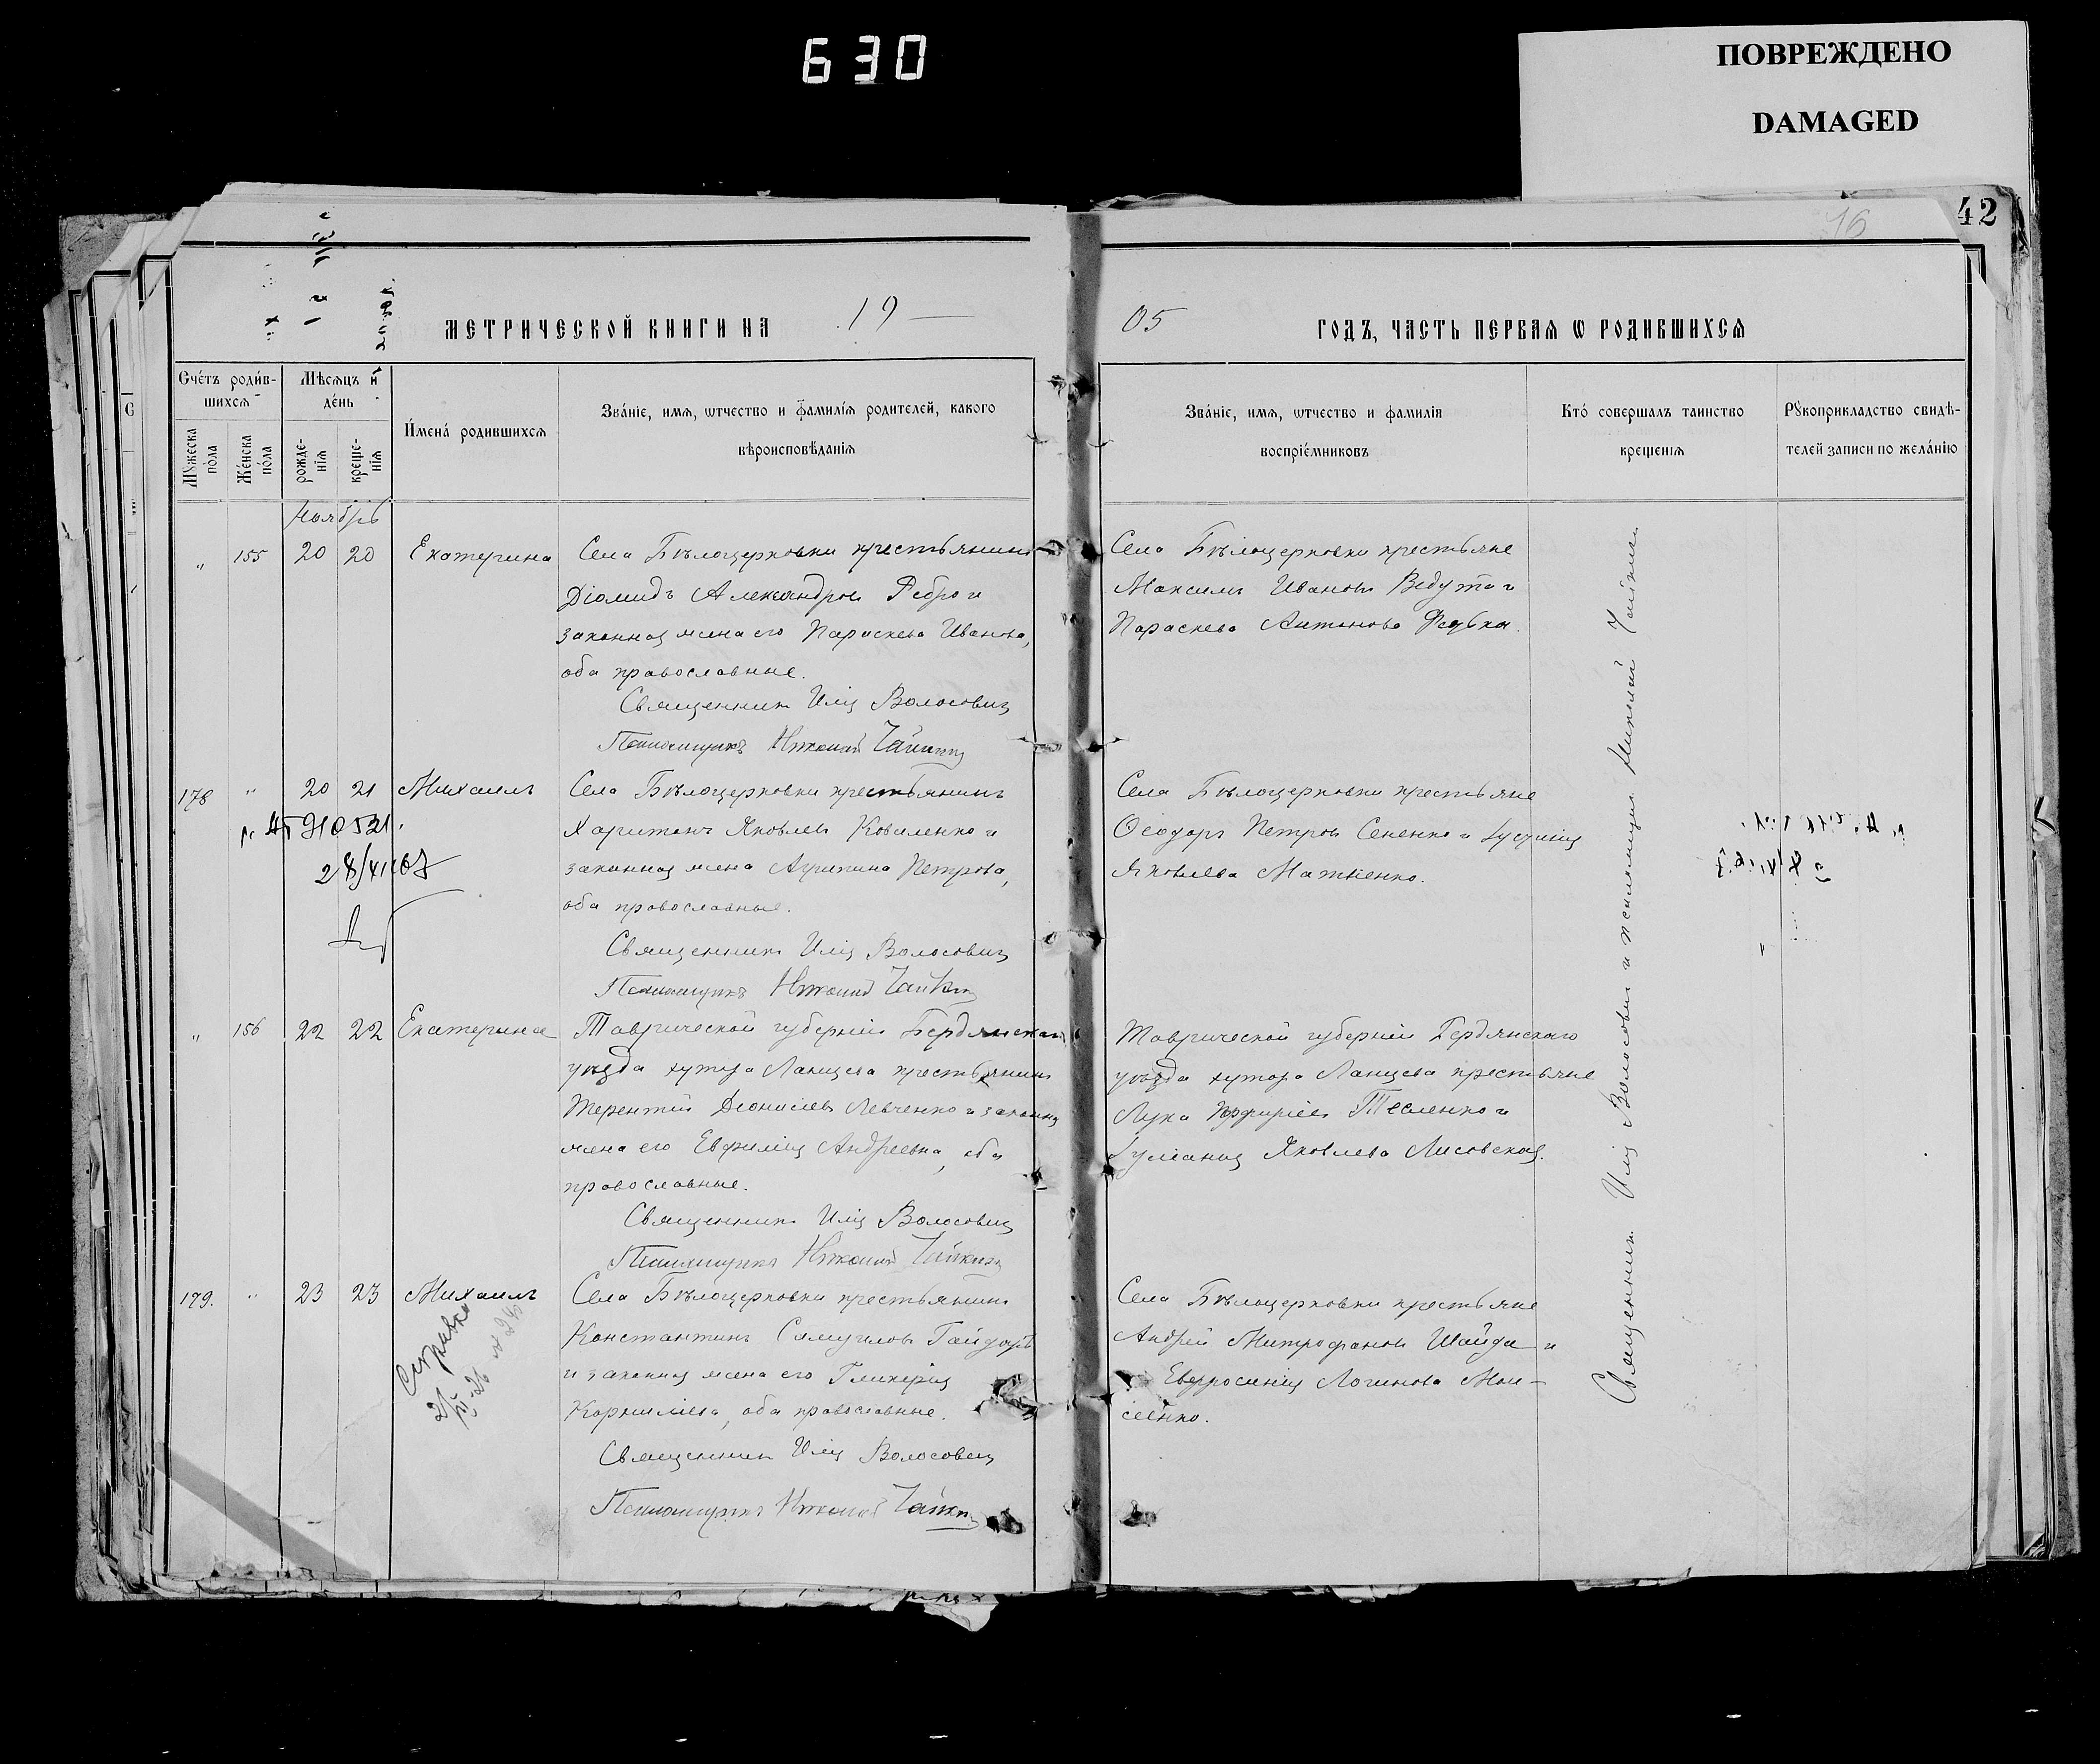 630
ПОВРЕЖДЕНО
DAMAGED
42
16
МЕТРИЧЕСКОЙ КНИГИ НА 19
05 ГОДЪ, ЧАСТЬ ПЕРВАЯ Ѡ РОДИВШИХСЯ
Счéтъ роди́в-
шихся
Мѣсяцъ и́
де́нь
Мꙋжеска
по́ла
Же́нска
по́ла
рожде-
нія
креще-
нія
И́мена́ родившихся
Зва́ніе, имя, ѡтчество и фамилі́я родителей, какого
вѣроисповѣ́данія
Зва́ніе, имя, ѡтчество и фамилія
воспріе́мниковъ
Кто́ совершалъ таинство
крещенія
Рꙋкоприкладство свидѣ-
телей записи по жела́нію
Ноябрь
" 155 20 20 Екатерина
Села Бѣлоцерковки крестьянинъ
Діомидъ Александровъ Ребро и
законная жена его Параскева Иванова,
оба православные.
Священникъ Илія Волосовичъ
Псаломщикъ Николай Чайкинъ
Села Бѣлоцерковки крестьяне
Максимъ Ивановъ Ведута и
Параскева Антонова
178 " 20 21 Михаилъ
28/XI
Села Бѣлоцерковки крестьянинъ
Харитонъ Яковлевъ Коваленко и
законная жена Агрипина Петрова,
оба православные.
Священникъ Илія Волосовичъ
Псаломщикъ Николай Чайкинъ
Села Бѣлоцерковки крестьяне
Ѳеодоръ Петровъ Сененко и Іустинія
Яковлева Матвіенко.
" 156 22 22 Екатерина
Таврической губерніи Бердянскаго
уѣзда хутора Ланцева крестьянинъ
Терентій Діонисіевъ Левченко и законная
жена его Евфимія Андреевна, оба
православные.
Священникъ Илія Волосовичъ
Псаломщикъ Николай Чайкинъ
Таврической губерніи Бердянскаго
уѣзда хутора Ланцева крестьяне
Лука Порфиріевъ Тесленко и
Іуліанія Яковлева Лисовская.
179. " 23 23 Михаилъ
Справка
Села Бѣлоцерковки крестьянинъ
Константинъ Самуиловъ Гайдаръ
и законная жена его Гликерія
Корниліева, оба православные.
Священникъ Илія Волосовичъ
Псаломщикъ Николай Чайкинъ
Села Бѣлоцерковки крестьяне
Андрей Митрофановъ Шайда и
Евфросинія Логинова Мои-
сеенко.
Священникъ Илія Волосовичъ и псаломщикъ Николай Чайкинъ